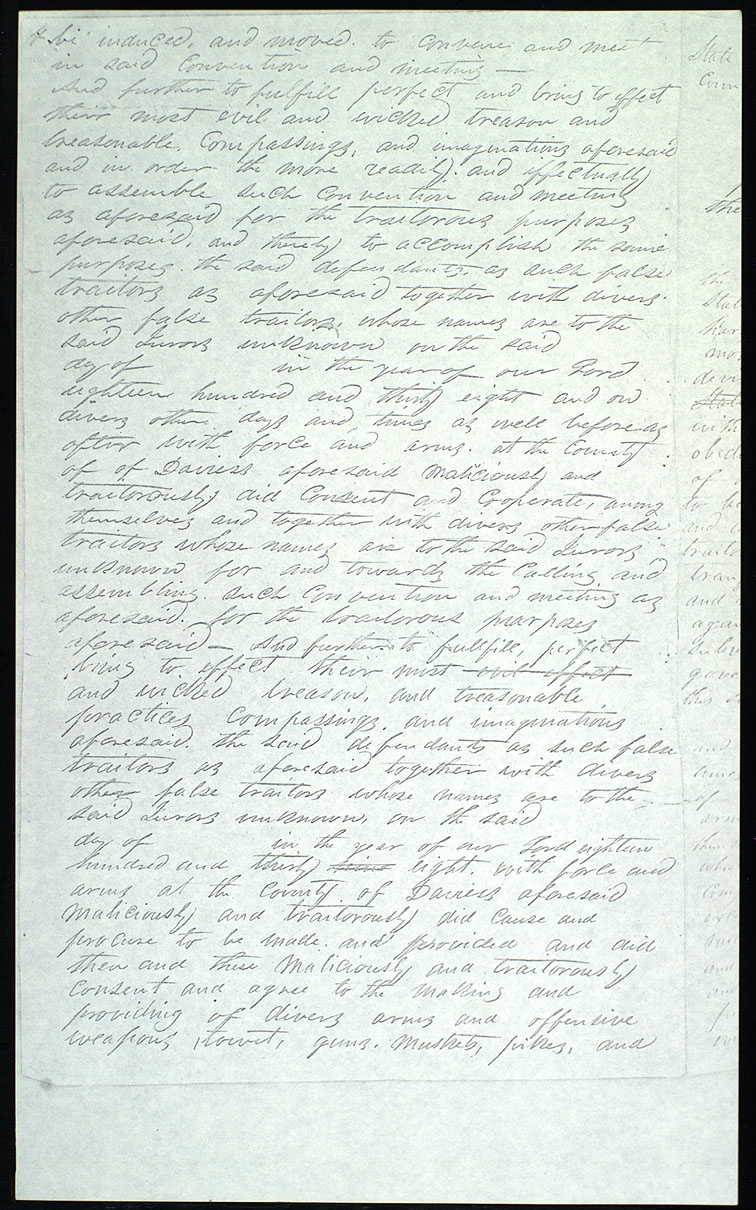 & be induced, and moved. to convene and meet
in said Convention and meeting —
And further to fulfill perfect and bring to effect
their most evil and wicked treason and
treasonable. Compassings, and imaginations aforesaid
and in order the more readily. and effectually
to assemble such Convention and meeting
as aforesaid for the traitorous purposes
aforesaid, and thereby to accomplish the same
purposes. the said defendants. as such false
traitors as aforesaid together with divers.
other false traitors, whose names are to the
said Jurors unknown on the said
day of in the year of our Lord
eighteen hundred and thirty eight and on
divers other days and times as well before as
after with force and arms. at the County
of of Daviess aforesaid Maliciously and
traitorously did Consent and Cooperate, among
themselves and together with divers other false
traitors whose names are to the said Jurors
unknown for and towards the Calling and
assembling. such Convention and meeting as
aforesaid. for the traitorous purposes
aforesaid — And further to fulfill, perfect
bring to effect their most evil effect
and wicked treason, and treasonable
practices Compassings. and imaginations
aforesaid. the said defendants as such false
traitors as aforesaid together with divers
other false traitors whose names are to the
said Jurors unknown, on the said
day of in the year of our Lord eighteen
hundred and thirty nine eight. with force and
arms at the County of Daviess aforesaid
Maliciously and traitorously did Cause and
procure to be made. and provided and did
then and there Maliciously and traitorously
Consent and agree to the making and
providing of divers arms and offensive
weapons, towit, guns. Muskets, pikes, and
State
the
of
to be
and